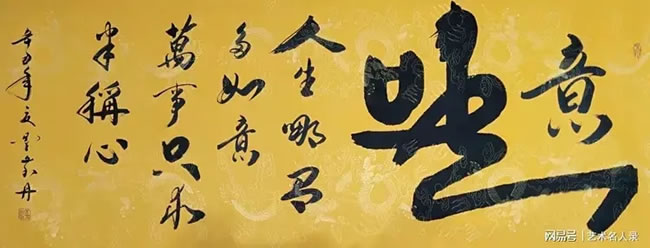 意
人生哪有
多如意
萬事只求
半稱心
辛丑年夏
网易号 | 艺术名人录